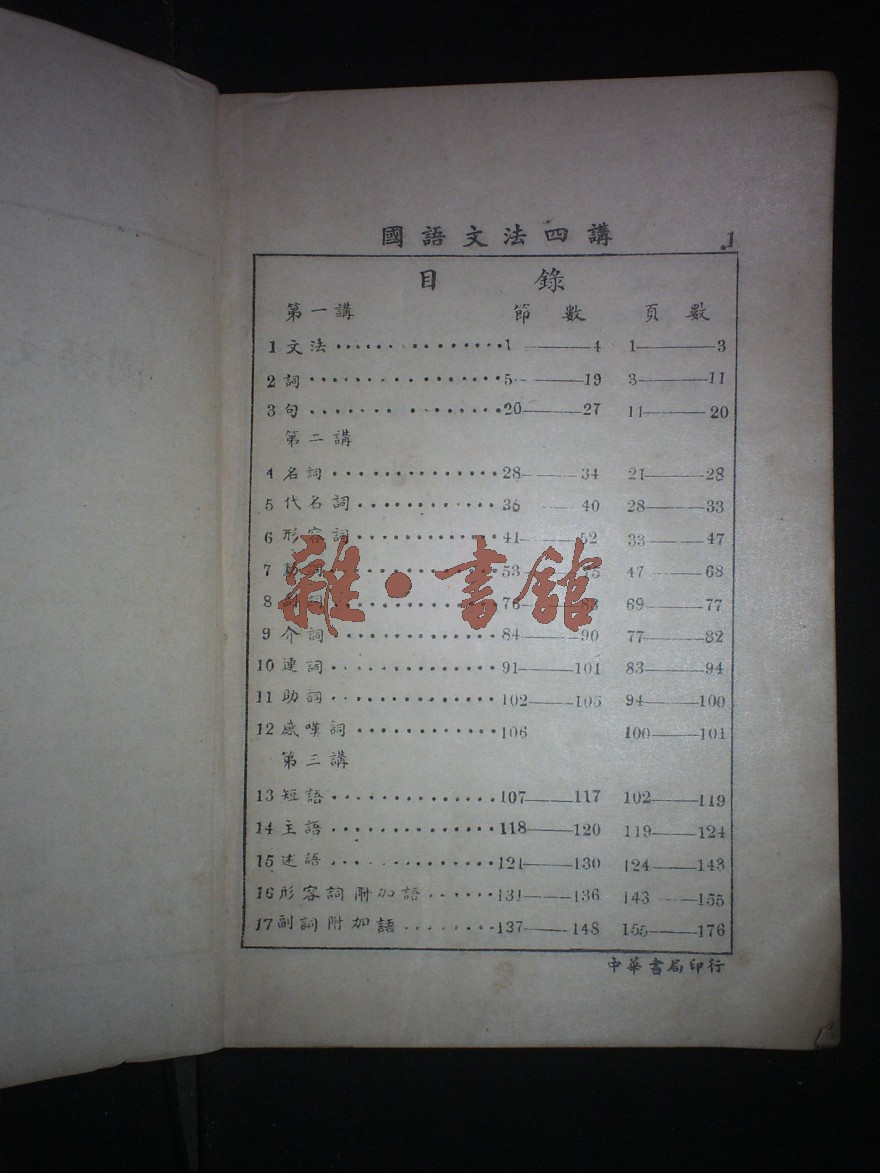 國語文法四講 1
目錄
第一講 節數 頁數
1 文法 1——4 1——3
2 詞 5——19 3——11
3 句 20——27 11——20
第二講
4 名詞 28——34 21——28
5 代名詞 35 40 28——33
6 形容詞 41——52 33——47
7 動詞 53——75 47——68
8 副詞 76——83 69——77
雜·書館
9 介詞 84——90 77——82
10 連詞 91——101 83——94
11 助詞 102——105 94——100
12 感嘆詞 106 100——101
第三講
13 短語 107——117 102——119
14 主語 118——120 119——124
15 述語 121——130 124——143
16 形容詞附加語 131——136 143——155
17 副詞附加語 137——148 155——176
中華書局印行